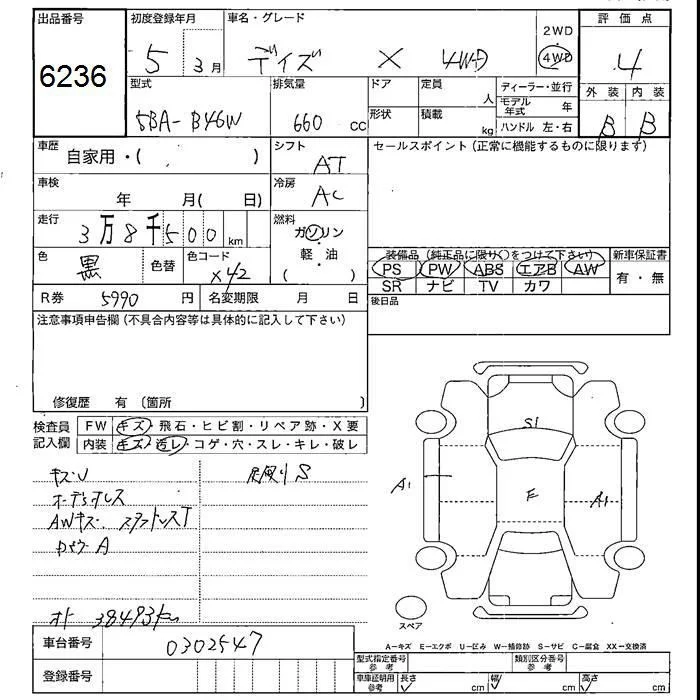 出品番号 初度登録年月 車名・グレード 評価点
6236 5 3月 デイズ X 4WD 2WD 4WD 4
型式 排気量 ドア 定員 人 ディーラー・並行 外装 内装
5BA-B46W 660 cc 形状 積載 kg モデル年式 年 B B
ハンドル 左・右
車歴 自家用・( ) シフト AT セールスポイント(正常に機能するものに限ります)
車検 年 月( 日) 冷房 AC
走行 3万8千500 km 燃料 ガソリン
軽・油
( )
色 黒 色替 色コード X42
装備品(純正品に限り○をつけて下さい) 新車保証書
PS PW ABS エアB AW 有・無
SR ナビ TV カワ
R券 5990 円 名変期限 月 日 後日品
注意事項申告欄(不具合内容等は具体的に記入して下さい)
修復歴 有(箇所 )
検査員 FW キズ・飛石・ヒビ割・リペア跡・X要
記入欄 内装 キズ・汚レ・コゲ・穴・スレ・キレ・破レ
キズU
AWキズ スタッドレスT
A
オド 38493km
S1
A1 F A1
スペア
A−キズ E−エクボ U−凹み W−補修跡 S−サビ C−腐食 XX−交換済
車台番号 0302547
登録番号
型式指定番号 参考 類別区分番号 参考
車庫証明用 参考 長さ cm 幅 cm 高さ cm